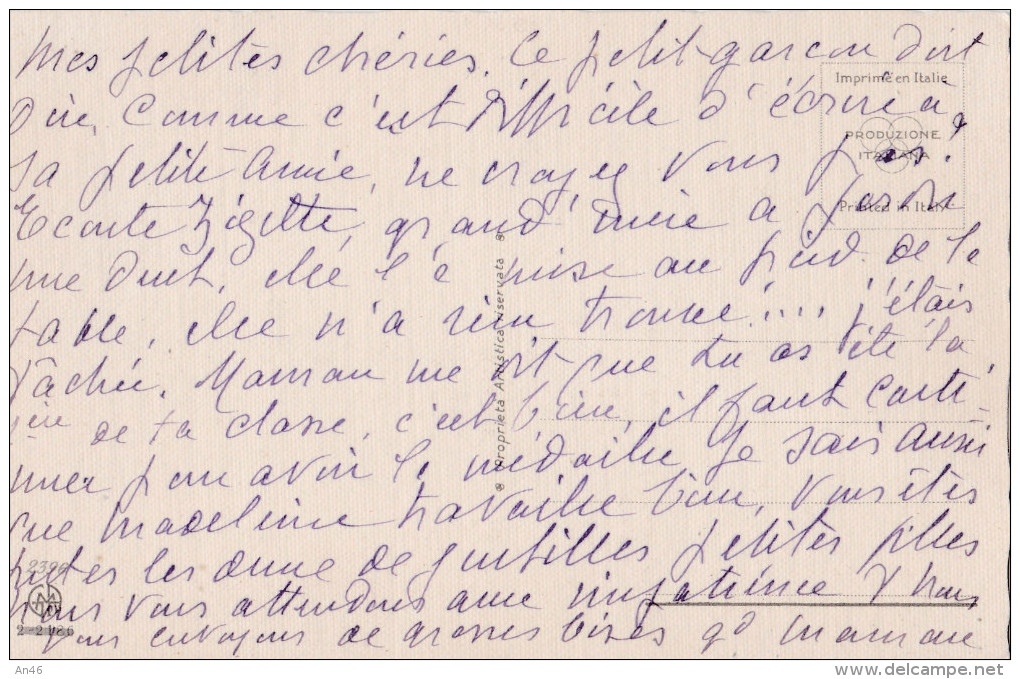 Mes petites chéries. Ce petit garçon doit
dire comme c'est difficile d'écrire à
sa petite amie, ne croyez vous pas?
Ecoute Zézette, grand'mère a perdu
une dent, elle l'a mise au pied de le
table, elle n'a rien trouvé!.... j'étais
fâchée. Maman me dit que tu as été la
1ère de ta classe, c'est bien, il faut conti-
nuer pour avoir la médaille. Je sais aussi
que Madeleine travaille bien, vous êtes
toutes les deux de gentilles petites filles
nous vous attendons avec impatience & nous
vous envoyons de grosses bises gd maman
Imprimé en Italie
PRODUZIONE
ITALIANA
Printed in Italy
® Proprietà Artistica riservata ®
2396
2-2186
An46
www.delcampe.net